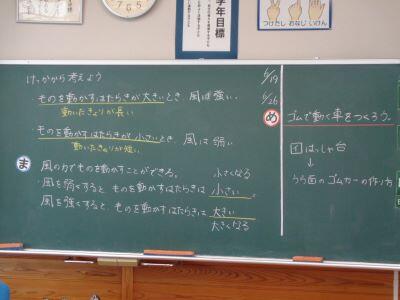 学年目標
つけたし おなじ いけん
けっかから考えよう
・ものを動かすはたらきが大きいとき、風は強い。
動いたきょりが長い
・ものを動かすはたらきが小さいとき、風は弱い
動いたきょりが短い
ま
風の力でものを動かすことができる。
小さくなる
・風を弱くすると、ものを動かすはたらきは小さい。
風を強くすると、ものを動かすはたらきは大きい
大きくなる
6/19
6/26
め
ゴムで動く車をつくろう。
はっしゃ台
↓
うら面のゴムカーの作り方